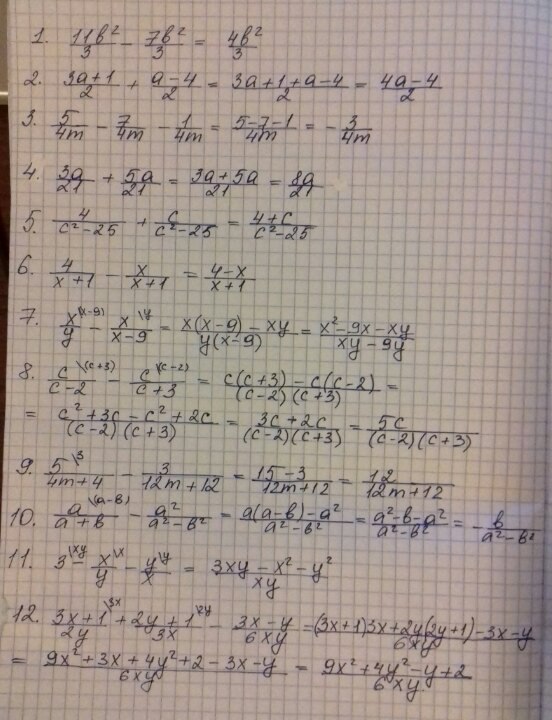 1. 11в²/3 − 7в²/3 = 4в²/3
2. 3a+1/2 + a−4/2 = 3a+1+a−4/2 = 4a−4/2
3. 5/4m − 7/4m − 1/4m = 5−7−1/4m = −3/4m
4. 3a/21 + 5a/21 = 3a+5a/21 = 8a/21
5. 4/c²−25 + c/c²−25 = 4+c/c²−25
6. 4/x+1 − x/x+1 = 4−x/x+1
7. x\(x−9)/y − x\y/x−9 = x(x−9)−xy/y(x−9) = x²−9x−xy/xy−9y
8. c\(c+3)/c−2 − c\(c−2)/c+3 = c(c+3)−c(c−2)/(c−2)(c+3) =
= c²+3c−c²+2c/(c−2)(c+3) = 3c+2c/(c−2)(c+3) = 5c/(c−2)(c+3)
9. 5\3/4m+4 − 3/12m+12 = 15−3/12m+12 = 12/12m+12
10. a\(a−в)/a+в − a²/a²−в² = a(a−в)−a²/a²−в² = a²−в−a²/a²−в² = −в/a²−в²
11. 3\xy − x\x/y − y\y/x = 3xy−x²−y²/xy
12. 3x+1\3x/2y + 2y+1\2y/3x − 3x−y/6xy = (3x+1)3x+2y(2y+1)−3x−y/6xy
= 9x²+3x+4y²+2−3x−y/6xy = 9x²+4y²−y+2/6xy